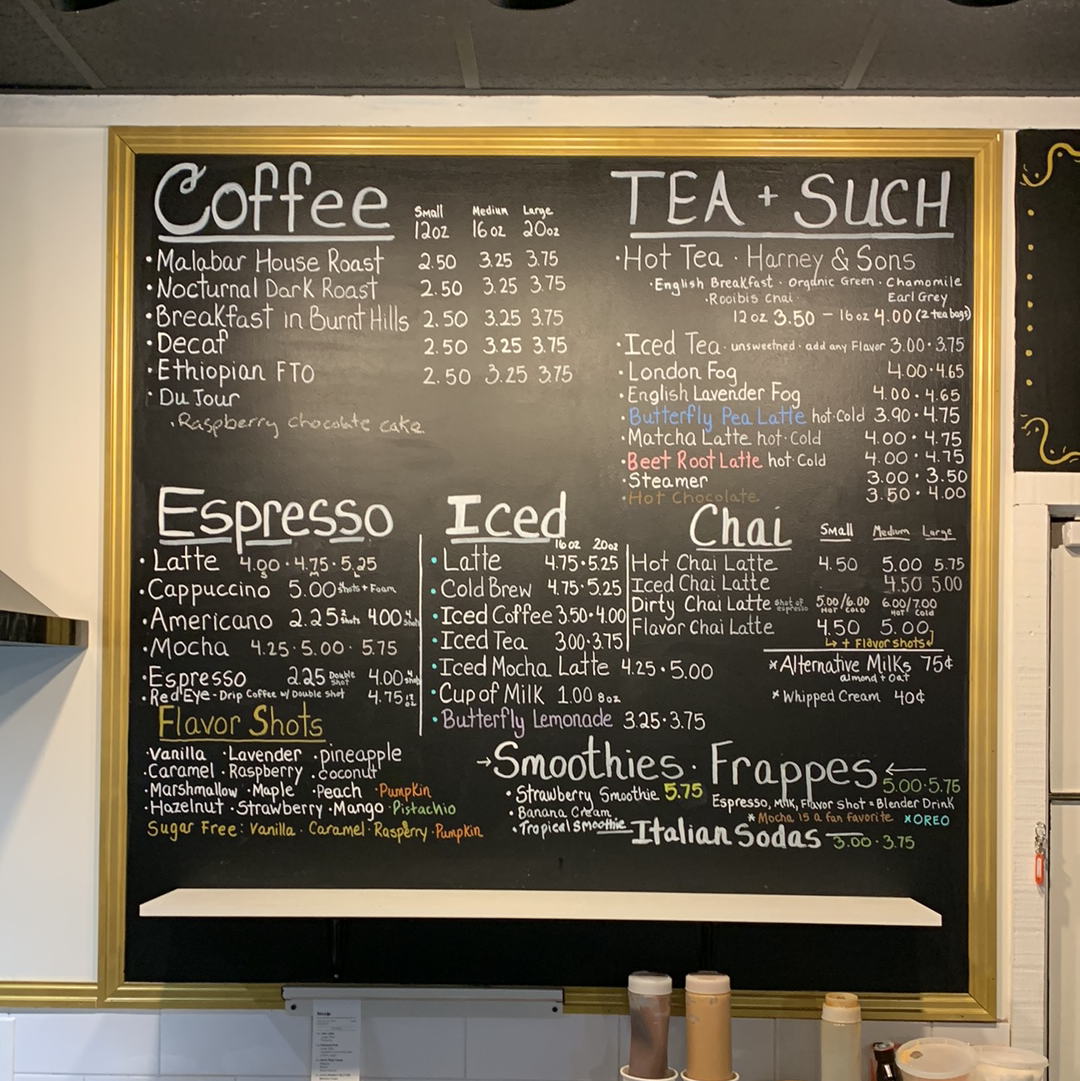 Coffee
Small Medium Large
12oz 16oz 20oz
· Malabar House Roast 2.50 3.25 3.75
· Nocturnal Dark Roast 2.50 3.25 3.75
· Breakfast in Burnt Hills 2.50 3.25 3.75
· Decaf 2.50 3.25 3.75
· Ethiopian FTO 2.50 3.25 3.75
· Du Jour
· Raspberry chocolate cake
TEA + SUCH
· Hot Tea · Harney & Sons
· English Breakfast · Organic Green · Chamomile
· Rooibis Chai · Earl Grey
12oz 3.50 - 16oz 4.00 (2 tea bags)
· Iced Tea · unsweetned · add any Flavor 3.00 · 3.75
· London Fog 4.00 · 4.65
· English Lavender Fog 4.00 · 4.65
· Butterfly Pea Latte hot · Cold 3.90 · 4.75
· Matcha Latte hot · Cold 4.00 · 4.75
· Beet Root Latte hot · Cold 4.00 · 4.75
· Steamer 3.00 · 3.50
· Hot Chocolate 3.50 · 4.00
Espresso
· Latte 4.00 · 4.75 · 5.25
S M L
· Cappuccino 5.00 shots + Foam
· Americano 2.25 2 shots 4.00 4 shots
· Mocha 4.25 · 5.00 · 5.75
· Espresso 2.25 Double Shot 4.00 4 shots
· Red Eye - Drip Coffee w/ Double shot 4.75
Iced
16oz 20oz
· Latte 4.75 · 5.25
· Cold Brew 4.75 · 5.25
· Iced Coffee 3.50 · 4.00
· Iced Tea 3.00 · 3.75
· Iced Mocha Latte 4.25 · 5.00
· Cup of Milk 1.00 8oz
· Butterfly Lemonade 3.25 · 3.75
Chai
Small Medium Large
Hot Chai Latte 4.50 5.00 5.75
Iced Chai Latte 4.50 5.00
Dirty Chai Latte shot of espresso 5.00/6.00 6.00/7.00
HOT COLD HOT COLD
Flavor Chai Latte 4.50 5.00
↳ + Flavor shots
* Alternative Milks 75¢
almond + oat
* Whipped Cream 40¢
Flavor Shots
· Vanilla · Lavender · pineapple
· Caramel · Raspberry · coconut
· Marshmallow · Maple · Peach · Pumpkin
· Hazelnut · Strawberry · Mango · Pistachio
Sugar Free: Vanilla · Caramel · Rasperry · Pumpkin
→ Smoothies · Frappes ←
5.00 · 5.75
· Strawberry Smoothie 5.75
· Banana Cream
· Tropical Smoothie
Espresso, Milk, Flavor Shot = Blender Drink
* Mocha is a fan favorite * OREO
Italian Sodas — 3.00 · 3.75